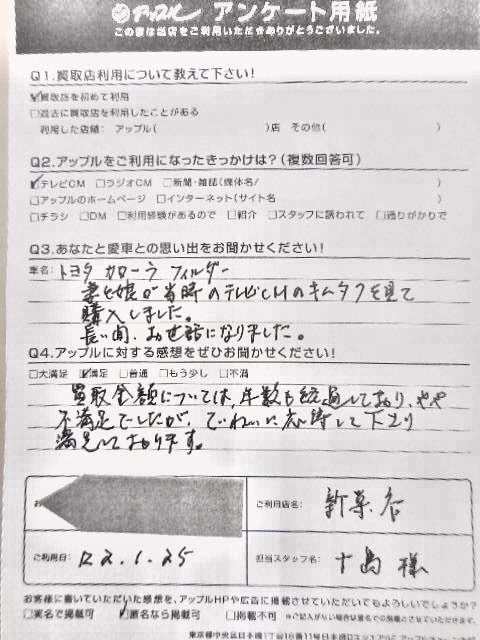 アップル アンケート用紙
この度は当店をご利用いただきありがとうございました。
Q1.買取店利用について教えて下さい!
☑買取店を初めて利用
□過去に買取店を利用したことがある
利用した店舗: アップル( )店 その他( )
Q2.アップルをご利用になったきっかけは?(複数回答可)
☑テレビCM □ラジオCM □新聞・雑誌(媒体名/ )
□アップルのホームページ □インターネット(サイト名 )
□チラシ □DM □利用経験があるので □紹介 □スタッフに誘われて □通りがかりで
Q3.あなたと愛車との思い出をお聞かせください!
車名: トヨタ カローラ フィルダー
妻と娘が当時のテレビCMのキムタクを見て
購入しました。
長い間、お世話になりました。
Q4.アップルに対する感想をぜひお聞かせください!
□大満足 ☑満足 □普通 □もう少し □不満
買取金額については、年数も経過しており、やや
不満足でしたが、ていねいに応待して下さり
満足しております。
お
ご利用店名: 新
ご利用日: R2.1.25
担当スタッフ名: 十島 様
お客様に書いていただいた感想を、アップルHPや広告に掲載させていただいてもよろしいでしょうか?
□実名で掲載可 ☑匿名なら掲載可 □掲載不可 ※ご記入がない場合は匿名での掲載とさせていただきます。
東京都中央区日本橋1丁目